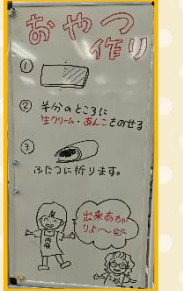 おやつ
作り
①
② 半分のところに
生クリーム・あんこをのせる
③
ふたつに折ります。
出来あがり
りよ〜